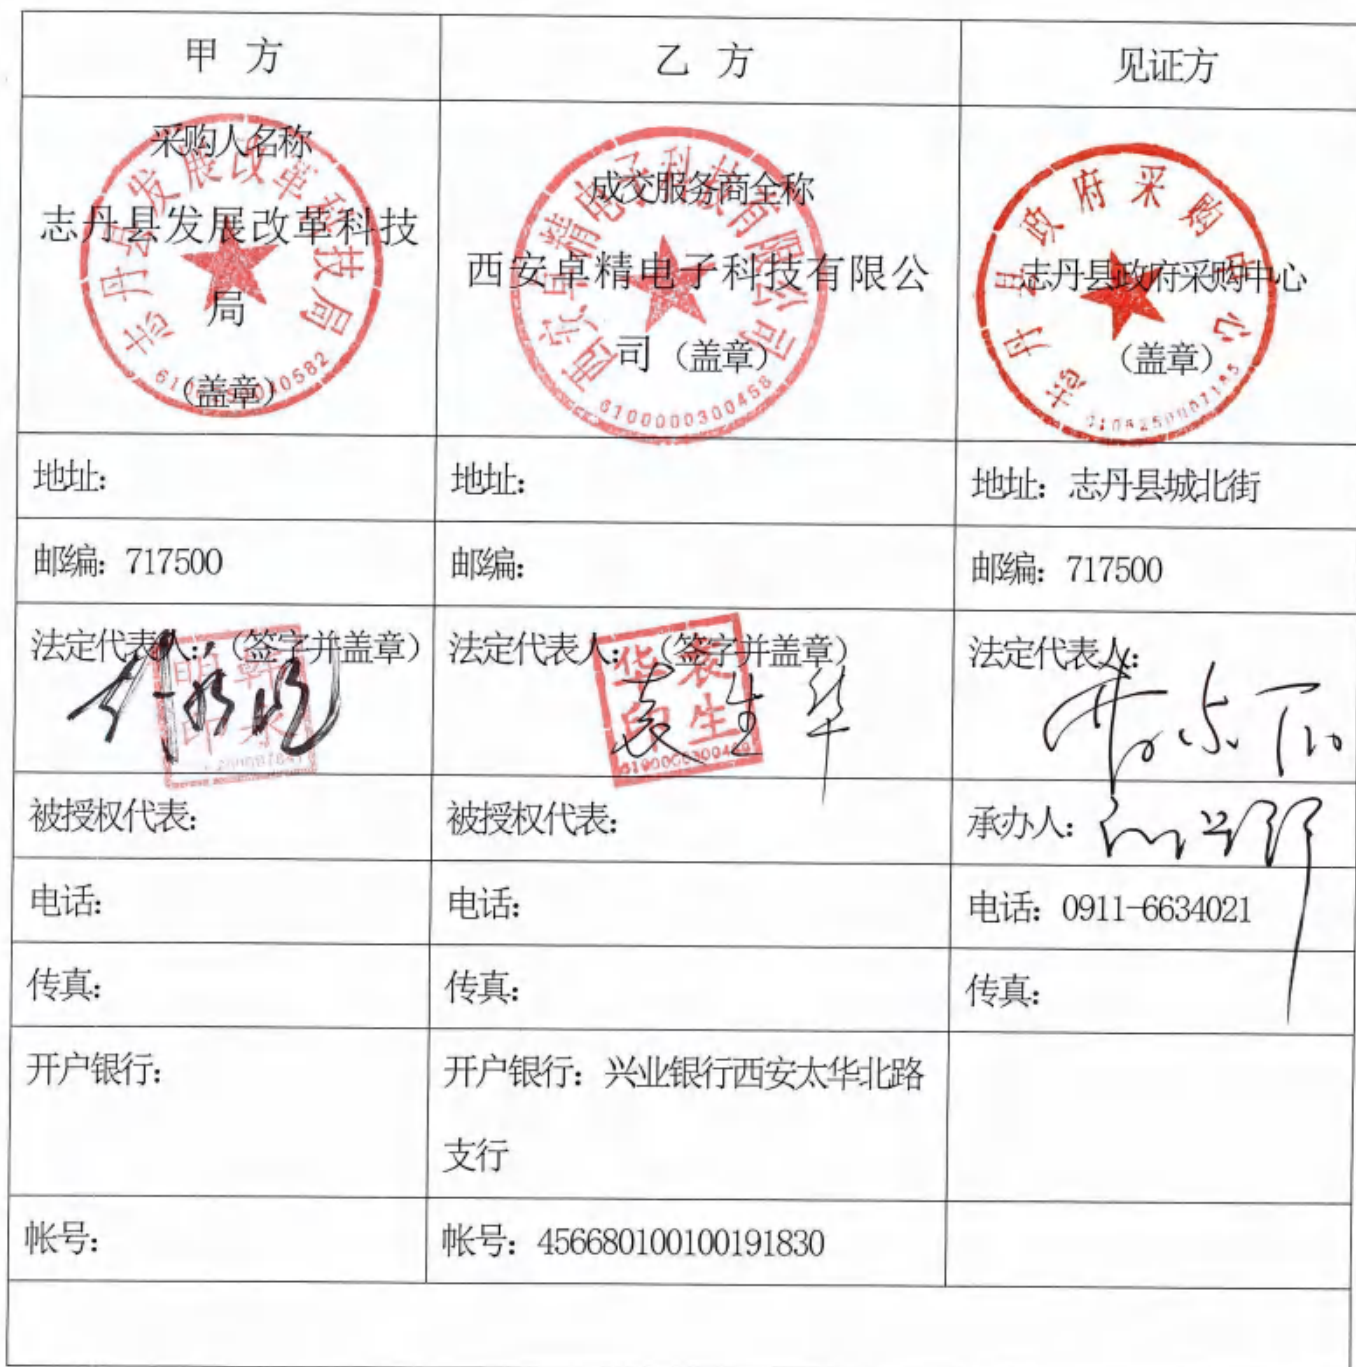 甲 方
乙 方
见证方
采购人名称
志丹县发展改革科技
局
(盖章)
志丹县发展改革科技局
成交服务商全称
西安卓精电子科技有限公
司 (盖章)
西安卓精电子科技有限公司
6100000300458
志丹县政府采购中心
(盖章)
志丹县政府采购中心
地址:
地址:
地址: 志丹县城北街
邮编: 717500
邮编:
邮编: 717500
法定代表人: (签字并盖章)
法定代表人: (签字并盖章)
袁生华
华袁
印生
法定代表人:
被授权代表:
被授权代表:
承办人:
电话:
电话:
电话: 0911-6634021
传真:
传真:
传真:
开户银行:
开户银行: 兴业银行西安太华北路
支行
帐号:
帐号: 456680100100191830